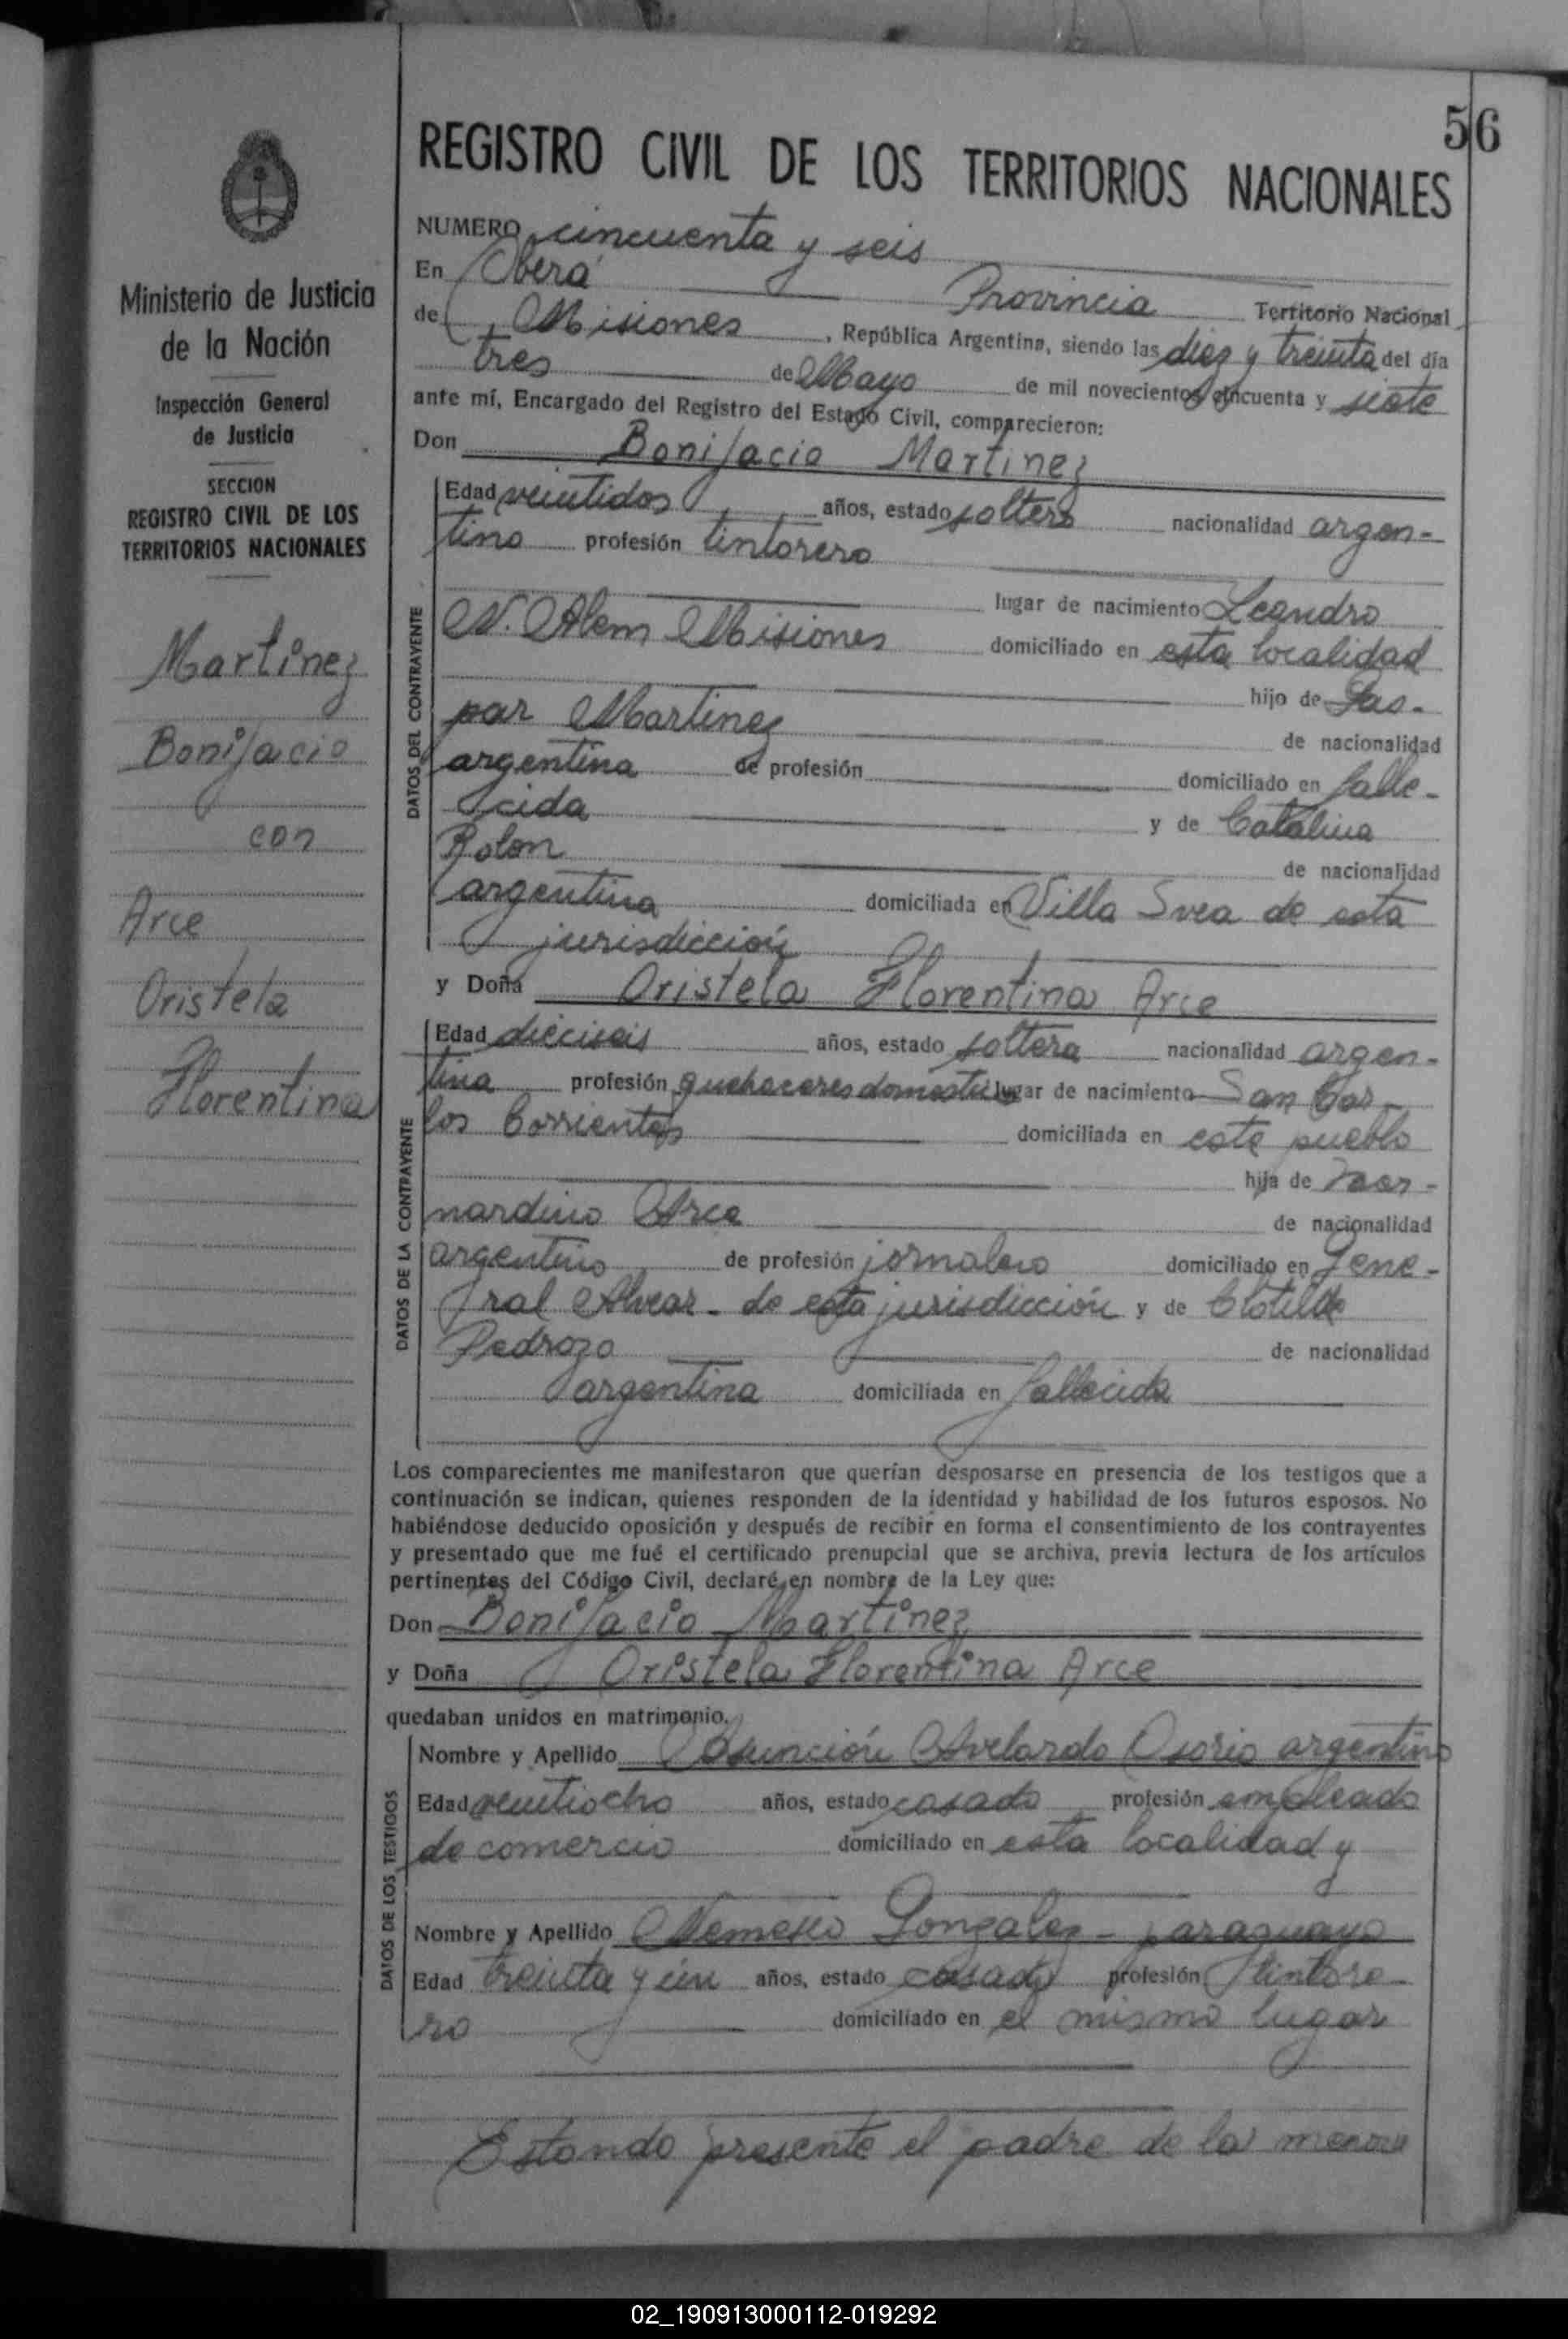 56
REGISTRO CIVIL DE LOS TERRITORIOS NACIONALES
Ministerio de Justicia
de la Nación
Inspección General
de Justicia
SECCION
REGISTRO CIVIL DE LOS
TERRITORIOS NACIONALES
Martinez
Bonifacio
con
Arce
Oristela
Florentina
NUMERO cincuenta y seis
En Oberá Provincia Territorio Nacional
de Misiones, República Argentina, siendo las diez y treinta del día
tres de Mayo de mil novecientos cincuenta y siete
ante mí, Encargado del Registro del Estado Civil, comparecieron:
Don Bonifacio Martinez
DATOS DEL CONTRAYENTE
Edad veintidos años, estado soltero nacionalidad argen-
tino profesión tintorero
lugar de nacimiento Leandro
N. Alem Misiones domiciliado en esta localidad
hijo de Gas-
par Martinez de nacionalidad
argentina de profesión domiciliado en falle-
cida y de Catalina
Rolon de nacionalidad
argentina domiciliada en Villa Svea de esta
jurisdicción
y Doña Oristela Florentina Arce
DATOS DE LA CONTRAYENTE
Edad dieciseis años, estado soltera nacionalidad argen-
tina profesión quehaceres domestic lugar de nacimiento San Car-
los Corrientes domiciliada en este pueblo
hija de
nardino Arce de nacionalidad
argentino de profesión jornalero domiciliado en Gene-
ral Alvear - de esta jurisdicción y de Clotilde
Pedrozo de nacionalidad
argentina domiciliada en fallecida
Los comparecientes me manifestaron que querían desposarse en presencia de los testigos que a
continuación se indican, quienes responden de la identidad y habilidad de los futuros esposos. No
habiéndose deducido oposición y después de recibir en forma el consentimiento de los contrayentes
y presentado que me fué el certificado prenupcial que se archiva, previa lectura de los artículos
pertinentes del Código Civil, declaré en nombre de la Ley que:
Don Bonifacio Martinez
y Doña Oristela Florentina Arce
quedaban unidos en matrimonio.
DATOS DE LOS TESTIGOS
Nombre y Apellido Asunción Avelardo Osorio argentino
Edad veintiocho años, estado casado profesión empleado
de comercio domiciliado en esta localidad y
Nombre y Apellido Nemesio Gonzalez - paraguayo
Edad treinta y un años, estado casado profesión tintore-
ro domiciliado en el mismo lugar
Estando presente el padre de la menor
02_190913000112-019292